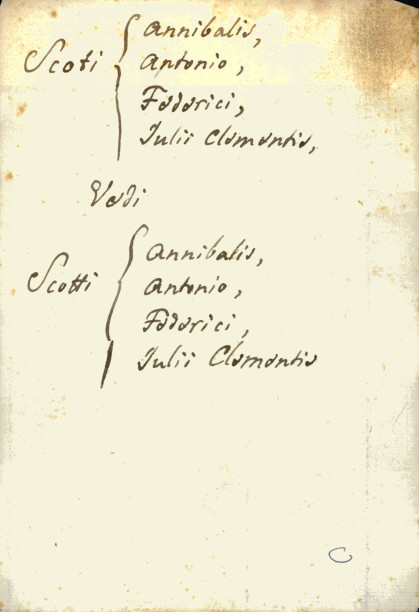 Scoti { Annibalis,
Antonio,
Federici,
Iulii Clementis,
Vedi
Scotti { Annibalis,
Antonio,
Federici,
Iulii Clementis
C